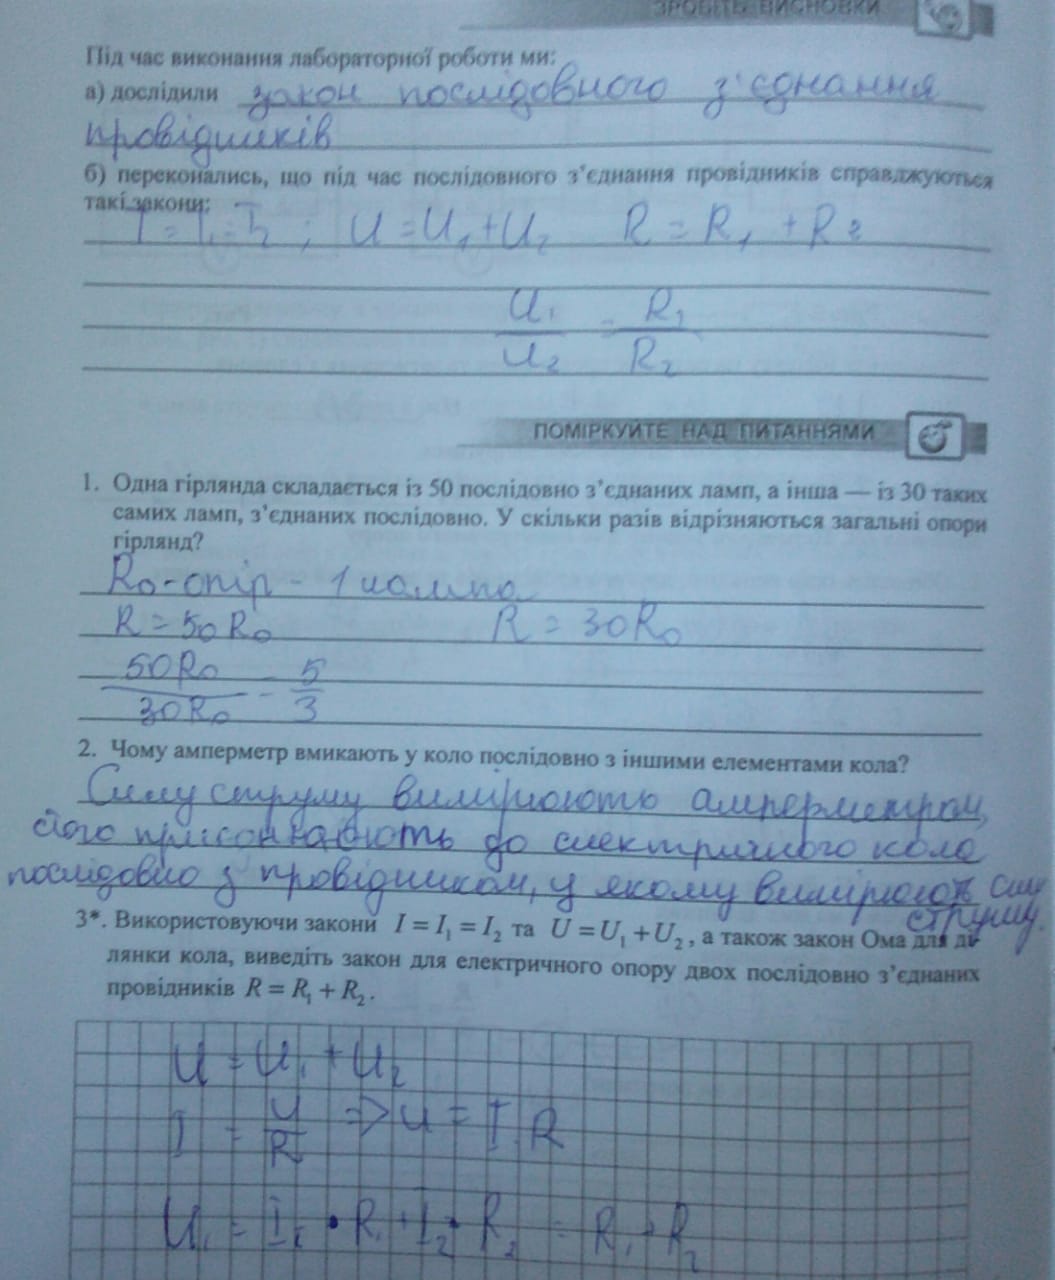 ЗРОБІТЬ ВИСНОВКИ
Під час виконання лабораторної роботи ми:
а) дослідили закон послідовного з'єднання
провідників
б) переконались, що під час послідовного з'єднання провідників справджуються
такі закони:
I = I₁ = I₂ ; U = U₁ + U₂ R = R₁ + R₂
U₁/U₂ = R₁/R₂
ПОМІРКУЙТЕ НАД ПИТАННЯМИ
1. Одна гірлянда складається із 50 послідовно з'єднаних ламп, а інша — із 30 таких
самих ламп, з'єднаних послідовно. У скільки разів відрізняються загальні опори
гірлянд?
R₀ - опір - 1
R = 50 R₀ R = 30R₀
50R₀/30R₀ = 5/3
2. Чому амперметр вмикають у коло послідовно з іншими елементами кола?
Силу струму вимірюють амперметром,
його приєднають до електричного кола
послідовно з провідником, у якому вимірюють силу
струму.
3*. Використовуючи закони I = I₁ = I₂ та U = U₁ + U₂, а також закон Ома для ді-
лянки кола, виведіть закон для електричного опору двох послідовно з'єднаних
провідників R = R₁ + R₂.
U = U₁ + U₂
I = U/R => U = I R
U₁ = I₁ · R₁ + I₂ · R₂ = R₁ + R₂